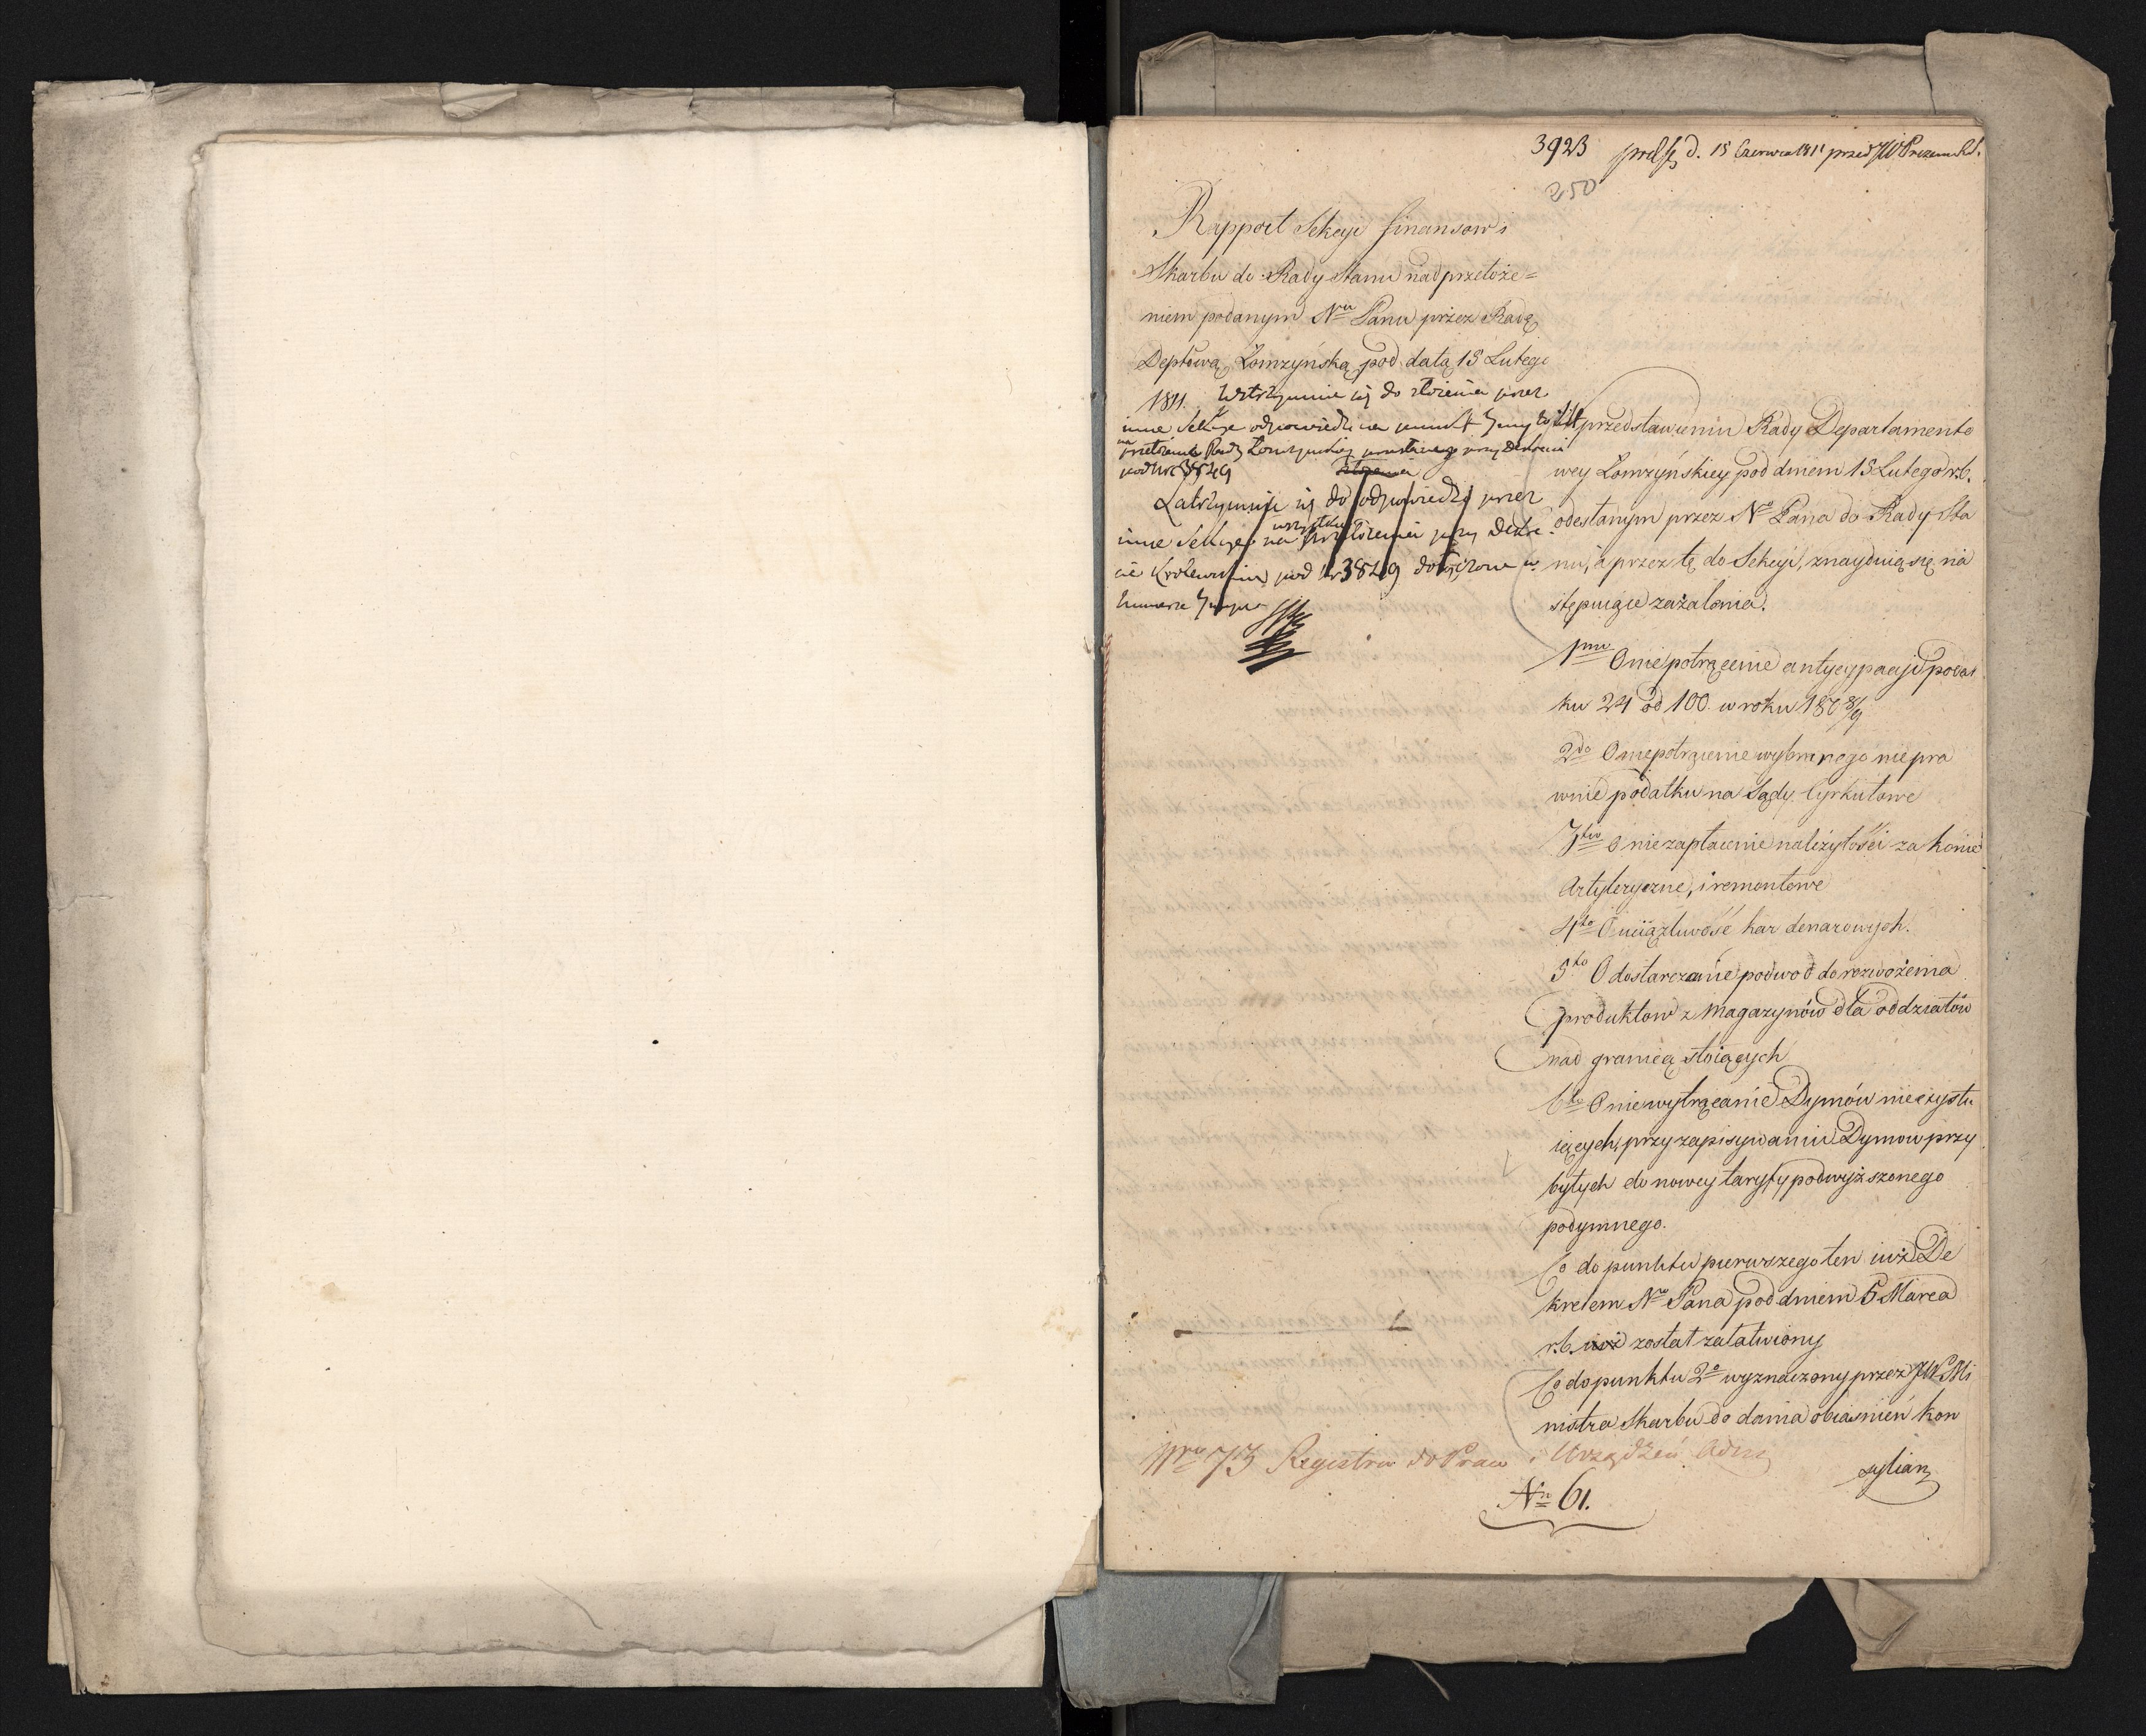 3923 d. 15 Czerwca 1811 przed JW
250
Rapport Sekcyi finansow i
Skarbu do Rady Stanu nad przełoże=
niem podanym Nu Panu przez Radę
Deptową Łomzyńską pod datą 15 Lutego
1811. Wstrzymuie się do złożenia przez
inne Sekcye odpowiedzi na
na przełożenie Rady Łomzynskiey przy Dekrecie
pod Nr 3849
Zatrzymuie się do odpowiedzi przez
inne Sekcye na wszystkie przełożenia przy Dekre-
cie Krolewskim pod Nr 3849 dołączone w
Numerze
W przedstawieniu Rady Departamento
wey Łomzyńskiey pod dniem 15 Lutego r.b.
odesłanym przez Na Pana do Rady Sta
nu, a przez tę do Sekcyi, znayduią się na
stępuiące zażalenia.
1mo O nie potrącenie antycypacyi podat
ku 24 od 100. w roku 1808/9
2do O niepotrącenie wybranego niepra
wnie podatku na Sądy Cyrkułowe
3tio O niezapłacenie należytości za konie
Artyleryczne, i remontowe
4to O uciążliwość kar denarowych.
5to O dostarczanie podwod do rozwożenia
produktow z magazynów dla oddziałów
nad granicą stoiących
6to O niewytrącanie Dymów nieexystu
iących, przy zapisywaniu Dymow przy
byłych do nowey taryfy podwyższonego
podymnego.
Co do punktu pierwszego ten iuż De
kretem Na Pana pod dniem 5 Marca
r.b. iuż został załatwiony
Co do punktu 2o wyznaczony przez JW Mi
nistra Skarbu do dania obiaśnień kon
syliarz
Nro 73 Registru do Praw i Urządzeń Adm
No 61.